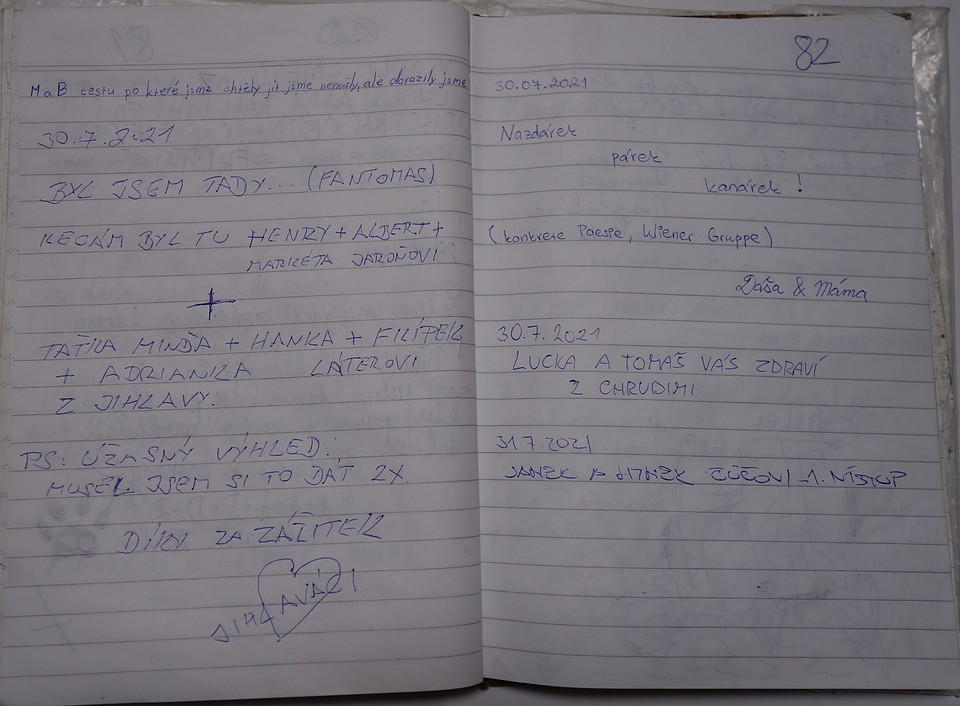 MaB cestu po které jsme chtěly jít jsme nenašly, ale obrazily jsme
30.7.2021
BYL JSEM TADY... (FANTOMAS)
KECÁM BYL TU HENRY + ALBERT +
MARKÉTA JAROŇOVI
+
TAŤKA MINĎA + HANKA + FILÍPEK
+ ADRIANKA LÁTEROVI
Z JIHLAVY.
PS: ÚŽASNÝ VÝHLED.
MUSEL JSEM SI TO DÁT 2X.
DÍKY ZA ZÁŽITEK
JIHLAVÁCI
82
30.07.2021
Nazdárek
párek
kanárek!
(konkrete Poesie, Wiener Gruppe)
Dáša & Máma
30.7.2021
LUCKA A TOMÁŠ VÁS ZDRAVÍ
Z CHRUDIMI
31.7.2021
JANEK A JITNEK 1. VÝSTUP